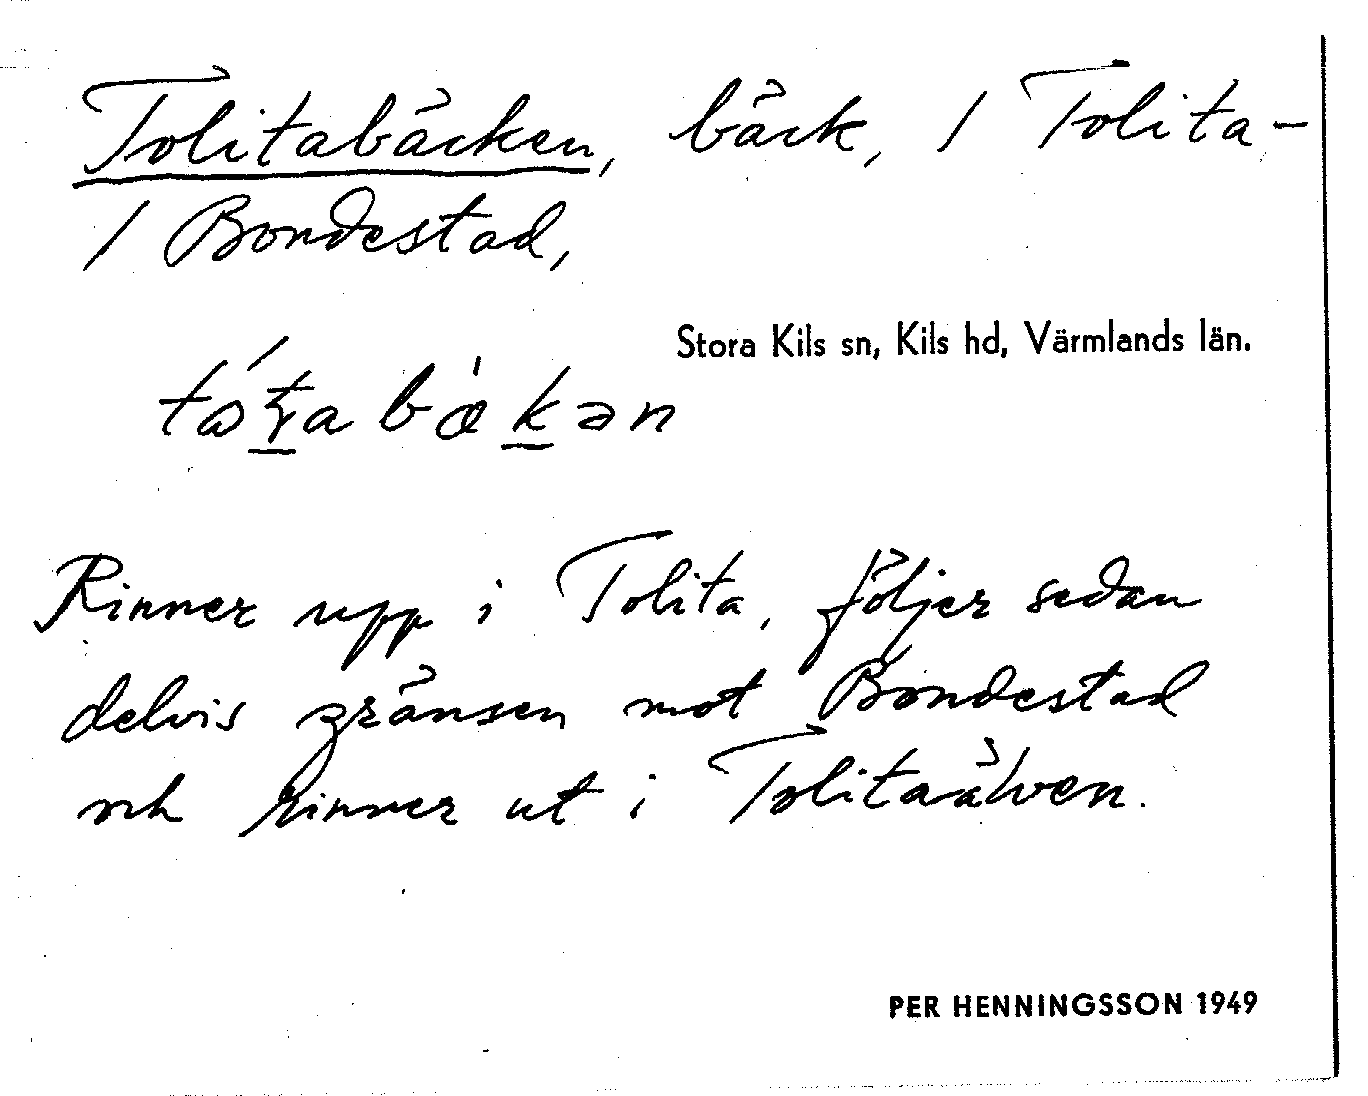 Tolitabäcken, bäck, / Tolita -
/ Bondestad,
Stora Kils sn, Kils hd, Värmlands län.
Rinner upp i Tolita, följer sedan
delvis gränsen mot Bondestad
och rinner ut i Tolitaälven.
PER HENNINGSSON 1949